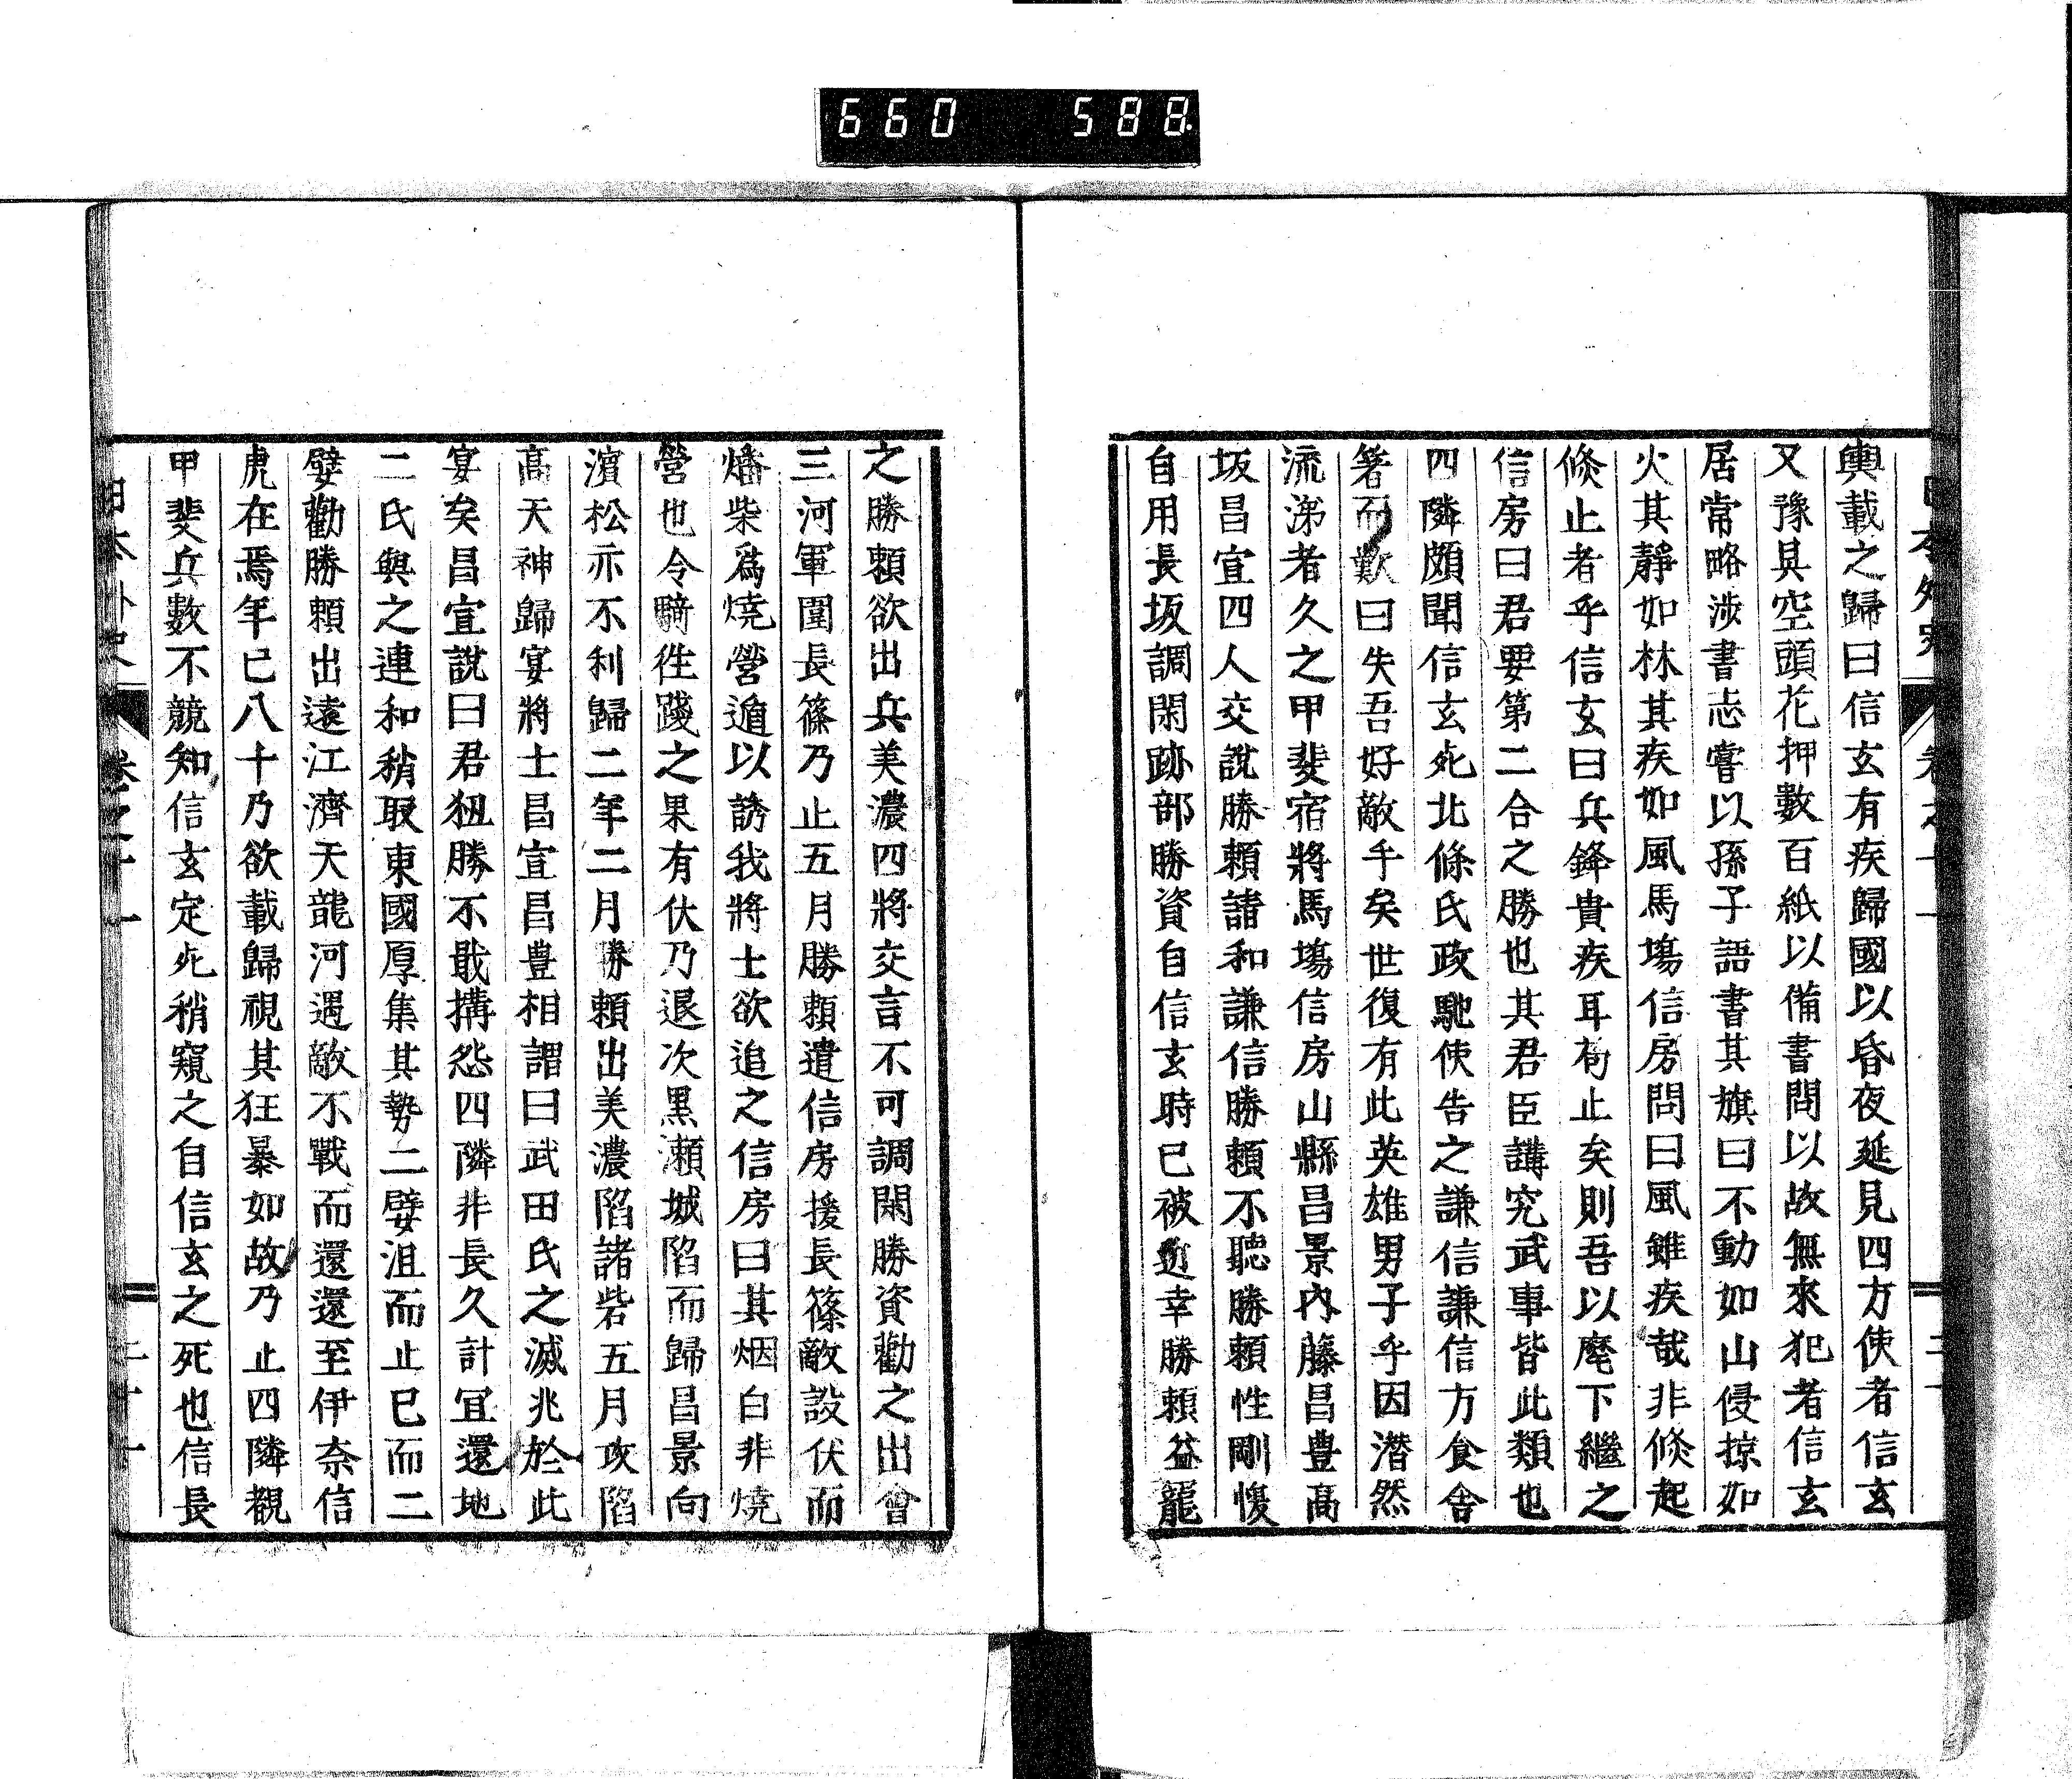 660 588.
輿載之歸曰信玄有疾歸國以昏夜延見四方使者信玄
又豫具空頭花押數百紙以備書問以故無來犯者信玄
居常略涉書志嘗以孫子語書其旗曰不動如山侵掠如
火其靜如林其疾如風馬塲信房問曰風雖疾哉非倏起
倏止者乎信玄曰兵鋒貴疾耳苟止矣則吾以麾下繼之
信房曰君要第二合之勝也其君臣講究武事皆此類也
四隣頗聞信玄死北條氏政馳使告之謙信謙信方食舍
箸而歎曰失吾好敵乎矣世復有此英雄男子乎因潸然
流涕者久之甲斐宿將馬塲信房山縣昌景內藤昌豊高
坂昌宣四人交說勝賴諸和謙信勝賴不聽勝賴性剛愎
自用長坂調閑跡部勝資自信玄時已被近幸勝賴益寵
之勝賴欲出兵美濃四將交言不可調閑勝資勸之出會
三河軍圍長篠乃止五月勝賴遣信房援長篠敵設伏而
燔柴爲燒營遁以誘我將士欲追之信房曰其烟白非燒
營也令騎徃踐之果有伏乃退次黑瀨城陷而歸昌景向
濱松亦不利歸二年二月勝賴出美濃陷諸砦五月攻陷
高天神歸宴將士昌宣昌豊相謂曰武田氏之滅兆於此
宴矣昌宣說曰君狃勝不戢搆怨四隣非長久計宜還地
二氏與之連和稍取東國厚集其勢二嬖沮而止已而二
嬖勸勝賴出遠江濟天龍河遇敵不戰而還還至伊奈信
虎在焉年已八十乃欲載歸視其狂暴如故乃止四隣覩
甲斐兵數不競知信玄定死稍窺之自信玄之死也信長
日本外史 卷之十一 二十一